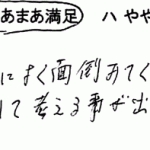 あまあ満足 ハ やや
によく面倒みてく
して考える事が出